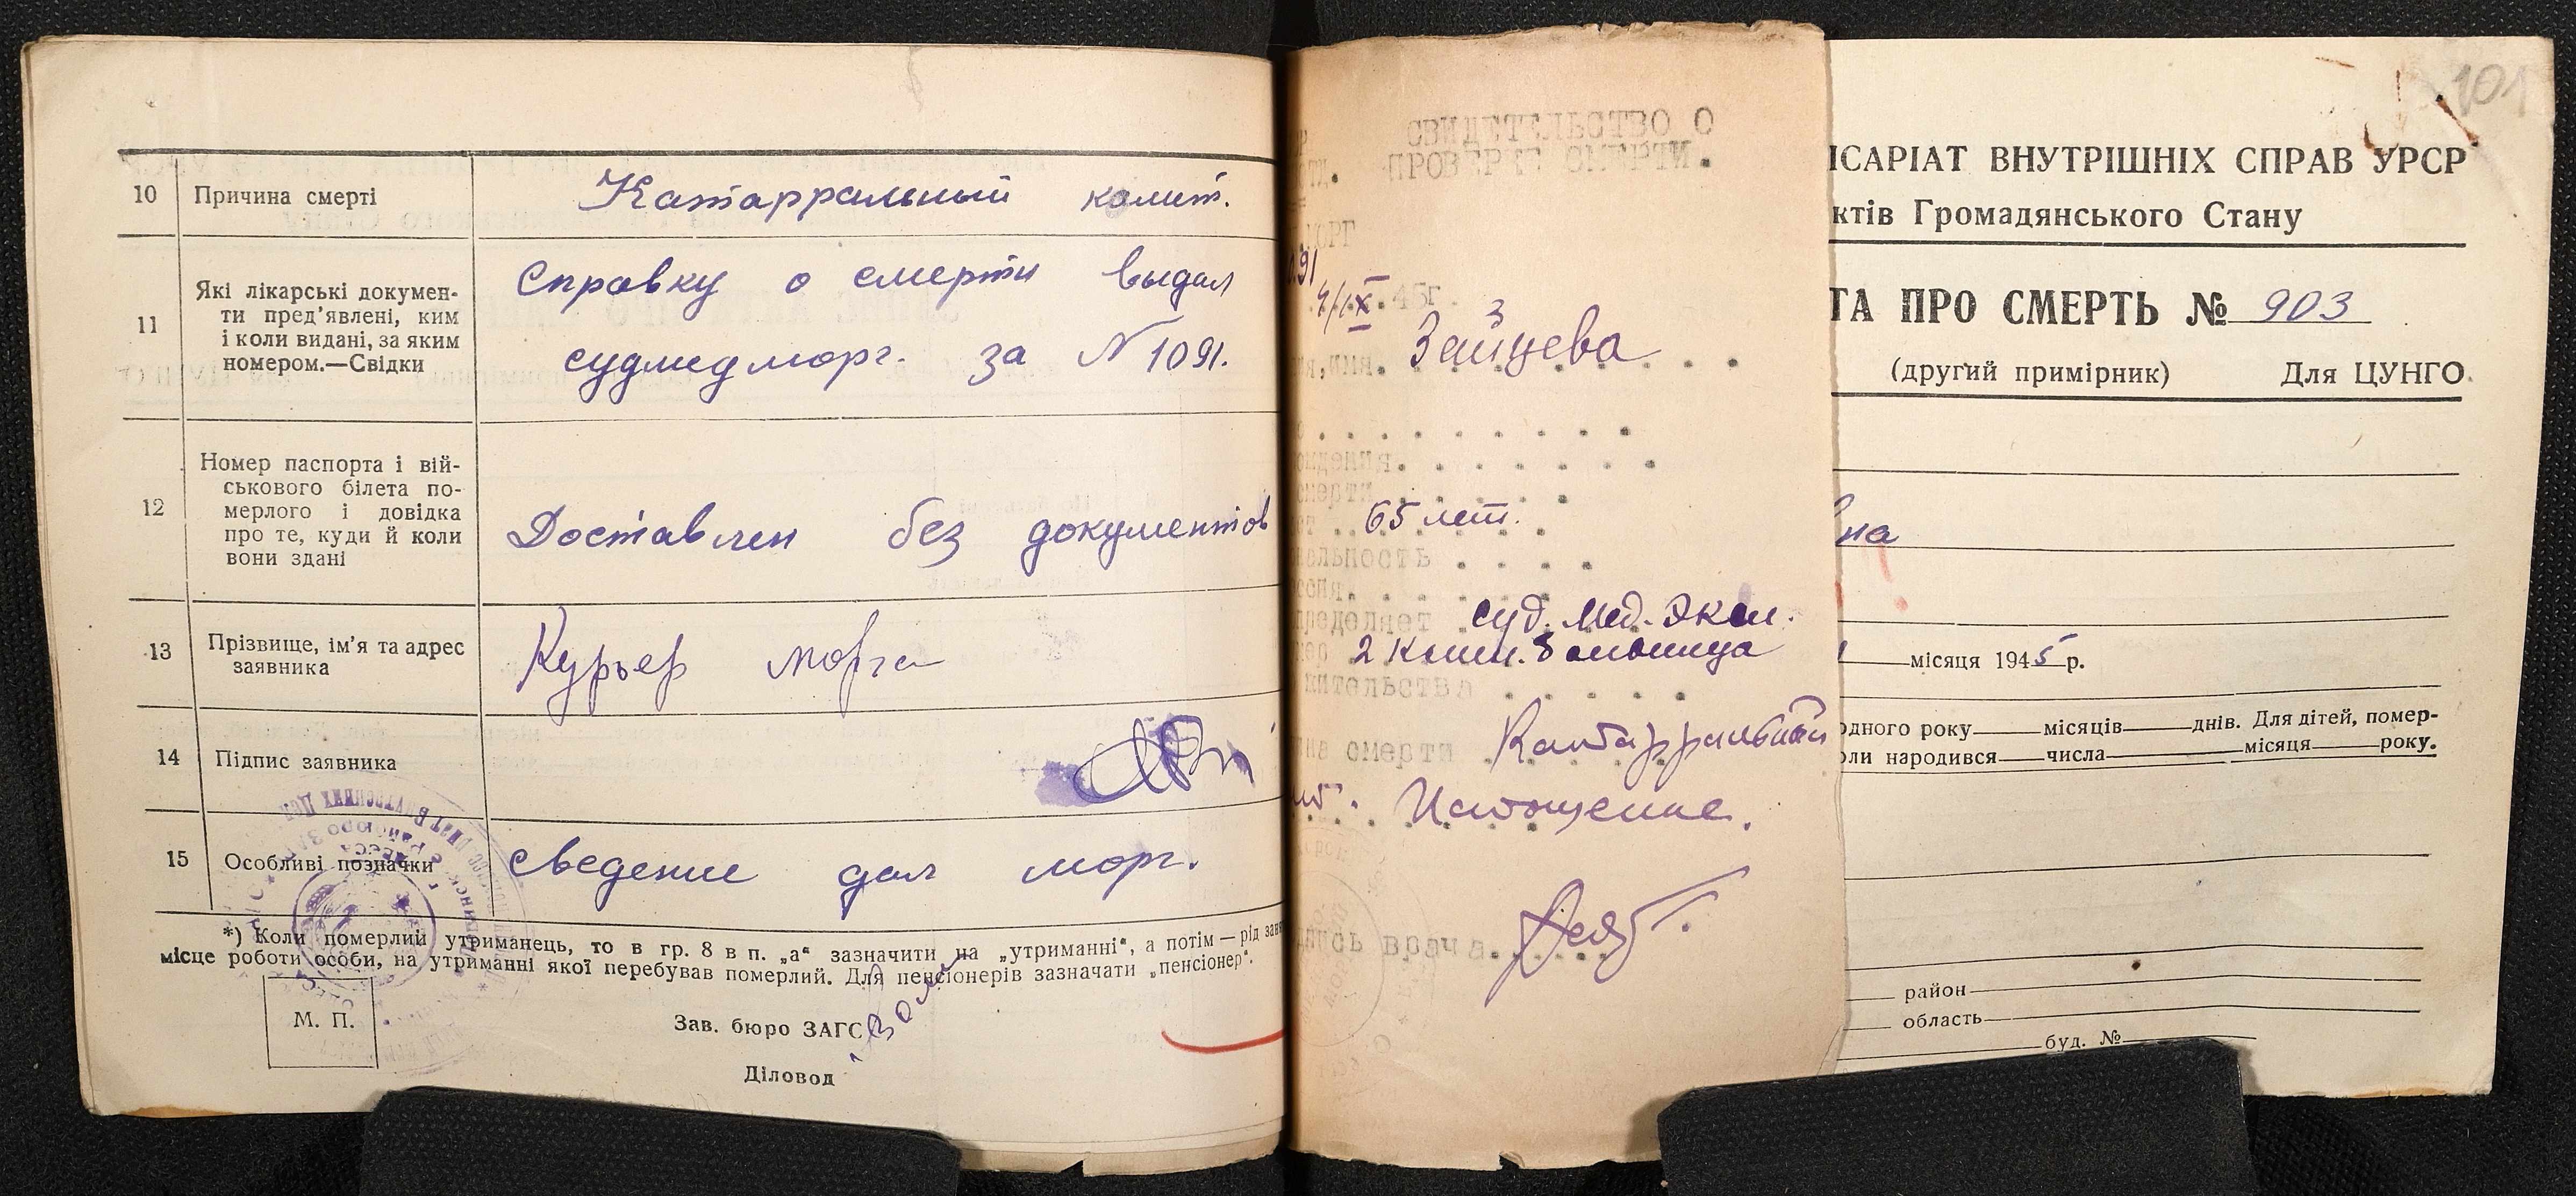 10 Причина смерті Катарральный колит.
11 Які лікарські докумен-
ти пред'явлені, ким
і коли видані, за яким
номером.—Свідки
Справку о смерти выдал
судмедморг. за N 1091.
12 Номер паспорта і вій-
ськового білета по-
мерлого і довідка
про те, куди й коли
вони здані
Доставлен без документов
13 Прізвище, ім'я та адрес
заявника
Курьер морга
14 Підпис заявника
15 Особливі позначки
Сведение дал морг.
*) Коли померлий утриманець, то в гр. 8 в п. „а" зазначити на „утриманні", а потім — рід
місце роботи особи, на утриманні якої перебував померлий. Для пенсіонерів зазначати „пенсіонер".
М. П.
Зав. бюро ЗАГС
Діловод
СВИДЕТЕЛЬСТВО О
ПРОВЕРКЕ СМЕРТИ.
МОРГ
45г.
Зайцева
65 лет.
суд. Мед. Эксп.
2 Клин. больница
жительства
смерти Катарральный
Истощение.
врача.
101
ІСАРІАТ ВНУТРІШНІХ СПРАВ УРСР
ктів Громадянського Стану
ТА ПРО СМЕРТЬ № 903
(другий примірник) Для ЦУНГО.
вна
місяця 1945 р.
одного року місяців днів. Для дітей, помер-
оли народився числа місяця року.
район
область
буд. №